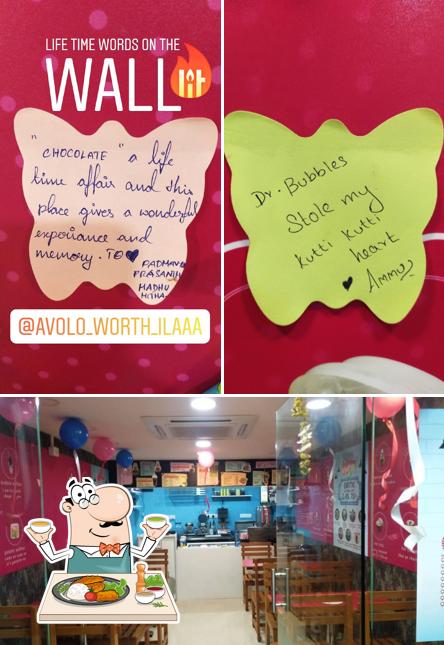 LIFE TIME WORDS ON THE
WALL
lit
" CHOCOLATE " a life
time affair and this
place gives a wonderful
experiance and
memory. TO ♥ PADMAVA
PRASANTH
MADHU
MITHA.
@AVOLO_WORTH_ILAAA
Dr. Bubbles
Stole my
kutti kutti
heart
♥ Ammu